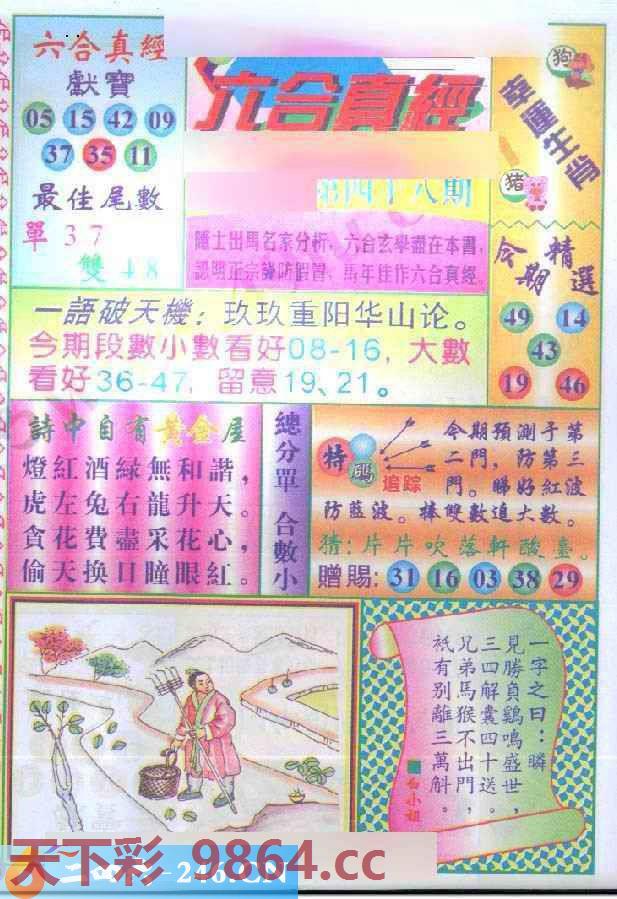 六合真經
獻寶
05 15 42 09
37 35 11
最佳尾數
單 3 7
雙 4 8
六合真經
第四十八期
隨士出馬名家分析，六合玄學盡在本書，
認明正宗謹防假冒，馬年佳作六合真經。
狗
幸運生肖
猪
今期精選
49 14
43
19 46
一語破天機：玖玖重阳华山论。
今期段數小數看好08-16，大數
看好36-47，留意19、21。
詩中自有黃金屋
燈紅酒綠無和諧，
虎左兔右龍升天。
貪花費盡采花心，
偷天换日瞳眼紅。
總分單 合數小
特碼追踪
今期預測于第
二門，防第三
門。睇好紅波
防藍波。棒雙數追大數。
猜：片片吹落軒酸臺。
贈賜：31 16 03 38 29
一字之曰：瞬
見勝負鷄鳴盛世，
三四解囊四十送。
兄弟馬猴不出門，
祇有别離三萬斛。
白小姐
天下彩 9864.cc
246.CN